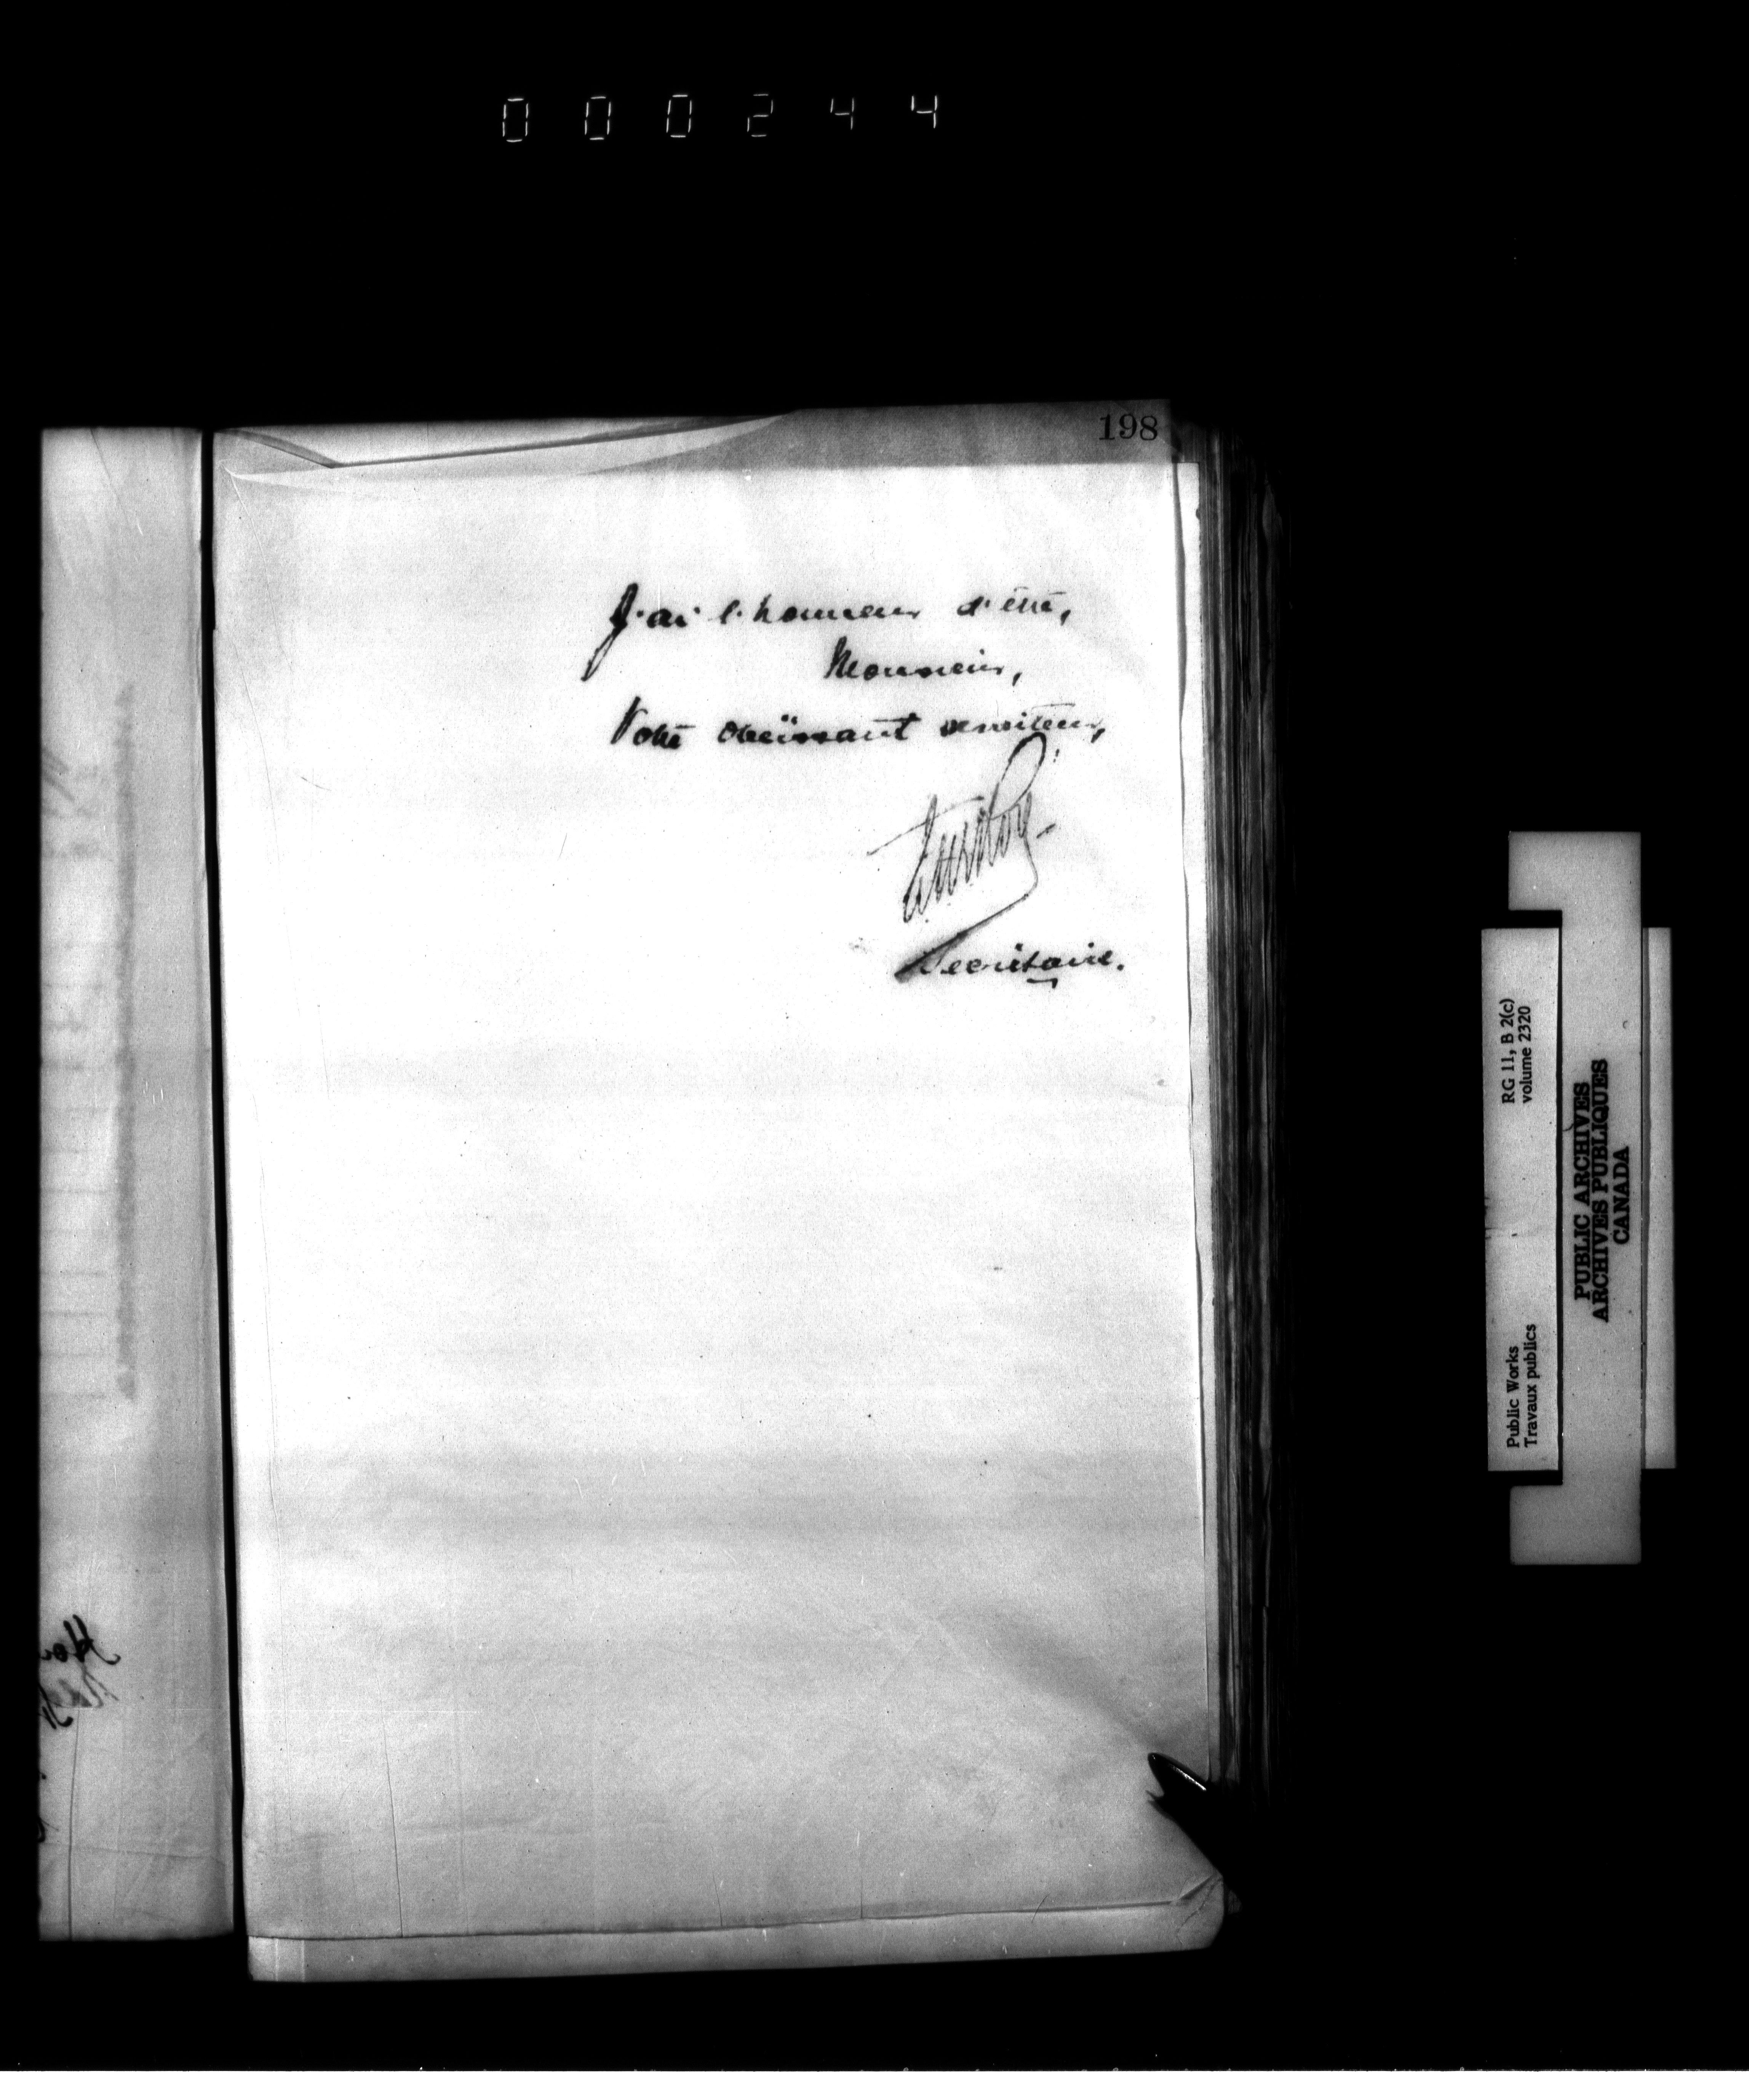 000244
198
J'ai l'honneur d'être,
Monsieur,
Votre obéissant serviteur,
Secrétaire.
RG 11, B 2(c)
volume 2320
Public Works
Travaux publics
PUBLIC ARCHIVES
ARCHIVES PUBLIQUES
CANADA